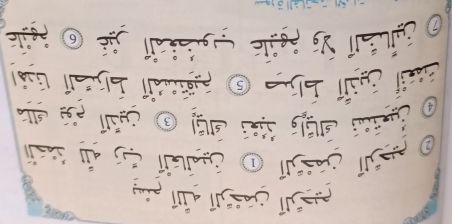 بِسْمِ اللَّهِ الرَّحْمَٰنِ الرَّحِيمِ
الْحَمْدُ لِلَّهِ رَبِّ الْعَالَمِينَ 1 الرَّحْمَٰنِ الرَّحِيمِ 2
مَالِكِ يَوْمِ الدِّينِ 3 إِيَّاكَ نَعْبُدُ وَإِيَّاكَ نَسْتَعِينُ 4
اهْدِنَا الصِّرَاطَ الْمُسْتَقِيمَ 5 صِرَاطَ الَّذِينَ أَنْعَمْتَ
عَلَيْهِمْ 6 غَيْرِ الْمَغْضُوبِ عَلَيْهِمْ وَلَا الضَّالِّينَ 7